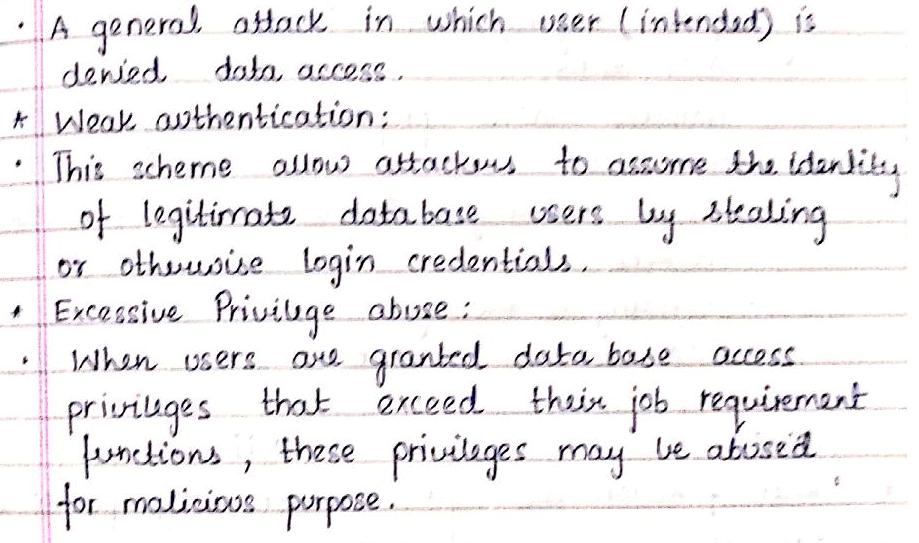 • A general attack in which user (intended) is
denied data access.
* Weak authentication:
• This scheme allow attackers to assume the identity
of legitimate database users by stealing
or otherwise login credentials.
* Excessive Privilege abuse:
• When users are granted data base access
privileges that exceed their job requirement
functions, these privileges may be abused
for malicious purpose.